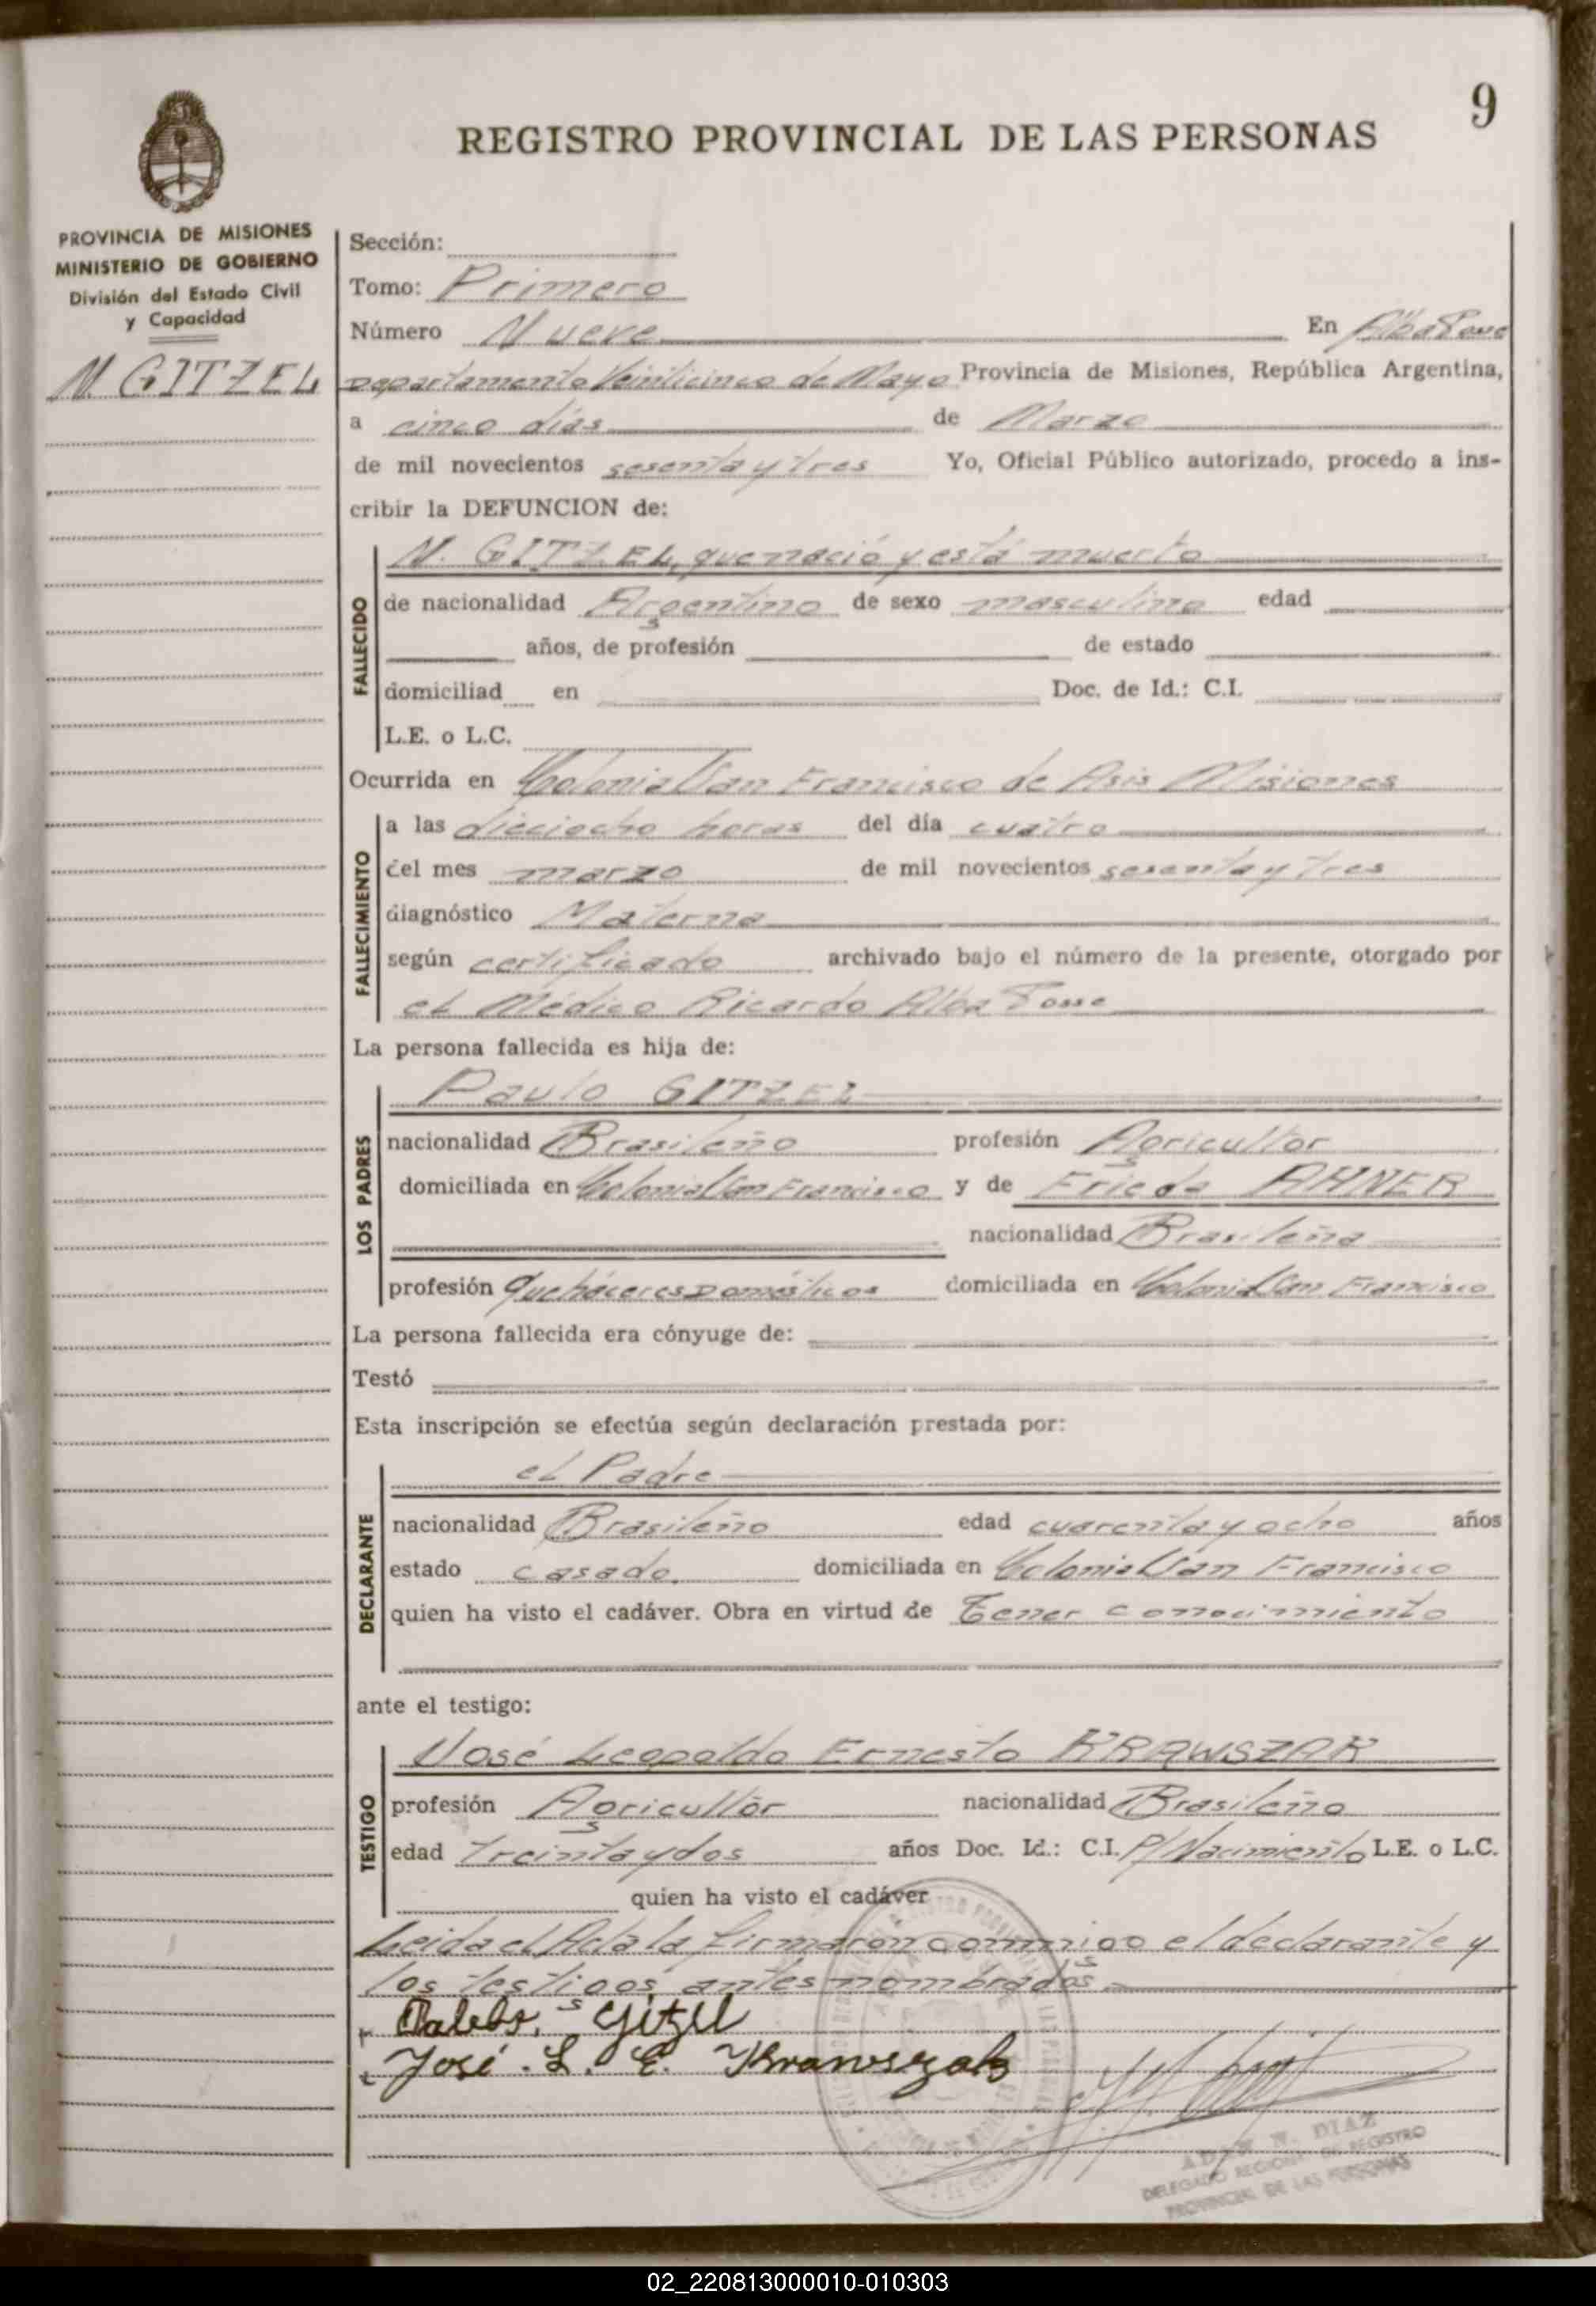 9
REGISTRO PROVINCIAL DE LAS PERSONAS
PROVINCIA DE MISIONES
MINISTERIO DE GOBIERNO
División del Estado Civil
y Capacidad
N. GITZEL
Sección:
Tomo: Primero
Número Nueve En Alba Posse
Departamento Veinticinco de Mayo Provincia de Misiones, República Argentina,
a cinco días de Marzo
de mil novecientos sesenta y tres Yo, Oficial Público autorizado, procedo a ins-
cribir la DEFUNCION de:
FALLECIDO
N. GITZEL, que nació y está muerto
de nacionalidad Argentino de sexo masculino edad
años, de profesión de estado
domiciliad en Doc. de Id.: C.I.
L.E. o L.C.
Ocurrida en Colonia San Francisco de Asis Misiones
FALLECIMIENTO
a las dieciocho horas del día cuatro
del mes marzo de mil novecientos sesenta y tres
diagnóstico Materna
según certificado archivado bajo el número de la presente, otorgado por
el Médico Ricardo Alba Posse
La persona fallecida es hija de:
LOS PADRES
Paulo GITZEL
nacionalidad Brasileño profesión Agricultor
domiciliada en Colonia San Francisco y de Frieda AHNER
nacionalidad Brasileña
profesión Quehaceres Domésticos domiciliada en Colonia San Francisco
La persona fallecida era cónyuge de:
Testó
Esta inscripción se efectúa según declaración prestada por:
DECLARANTE
el Padre
nacionalidad Brasileño edad cuarenta y ocho años
estado casado. domiciliada en Colonia San Francisco
quien ha visto el cadáver. Obra en virtud de Tener conocimiento
ante el testigo:
TESTIGO
José Leopoldo Ernesto KRAWSZAK
profesión Agricultor nacionalidad Brasileño
edad Treinta y dos años Doc. Id.: C.I. P/Nacimiento L.E. o L.C.
quien ha visto el cadáver
Leida el Acta la firmaron conmigo el declarante y
los testigos antes nombrados.
Gitzel
José. L. E. Krawszak
W. DIAZ
DELEGADO REGIONAL DE REGISTRO
PROVINCIAL DE LAS PERSONAS
02_220813000010-010303